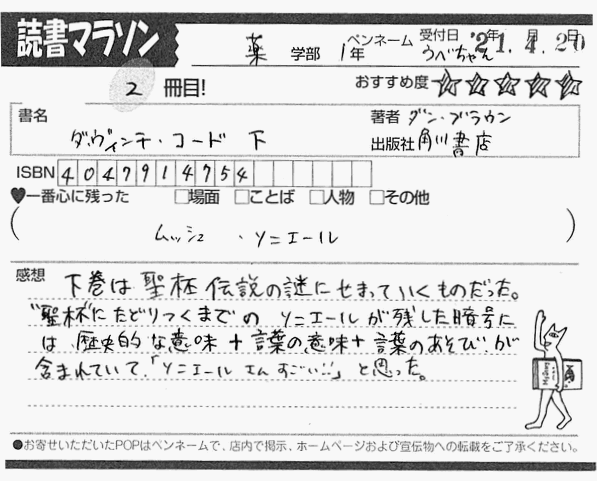 読書マラソン 薬 学部 1年 ペンネーム うべちゃん 受付日 '21年 4月 20日
2 冊目! おすすめ度 ☆☆☆☆☆
書名 ダ・ヴィンチ・コード 下
著者 ダン・ブラウン
出版社 角川書店
ISBN 4047914754
♥一番心に残った □場面 □ことば □人物 □その他
( ムッシュ・ソニエール )
感想 下巻は聖杯伝説の謎にせまっていくものだった。
"聖杯"にたどりつくまでの ソニエールが残した暗号に
は 歴史的な意味 + 言葉の意味 + 言葉のあそび が
含まれていて、「ソニエールさんすごい!!」と思った。
●お寄せいただいたPOPはペンネームで、店内で掲示、ホームページおよび宣伝物への転載をご了承ください。